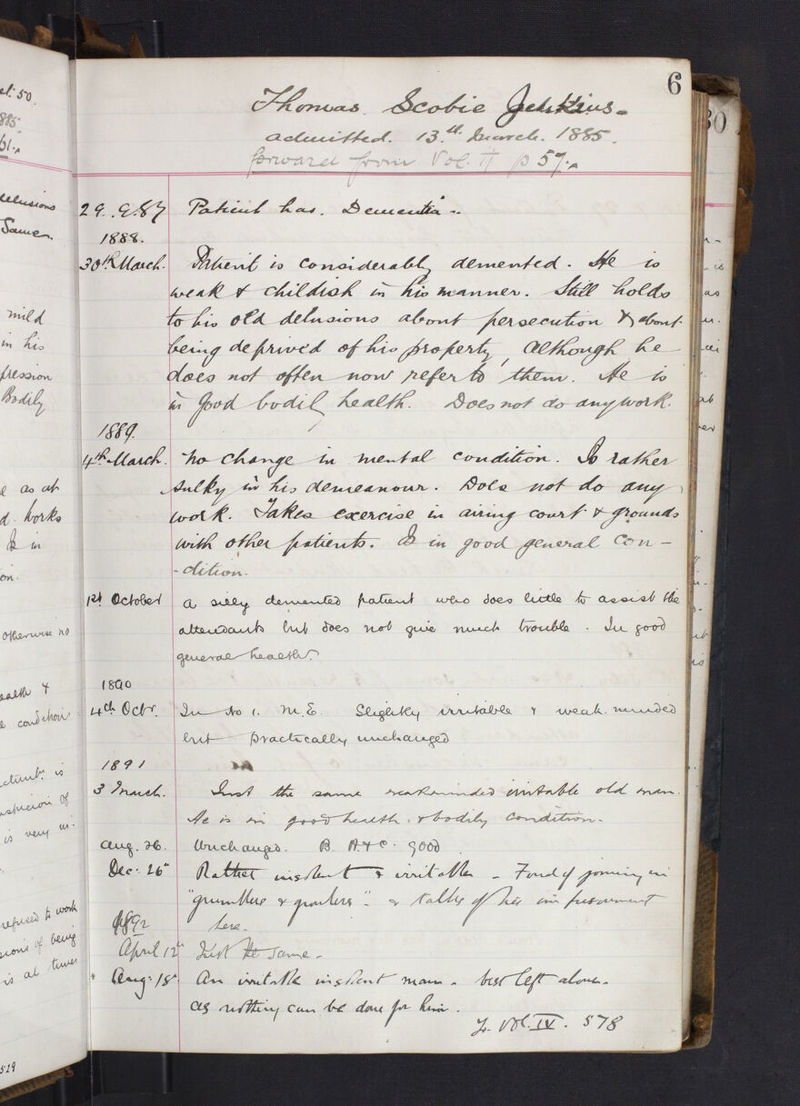 6
Thomas Scobie Jenkins
admitted. 13.th March. 1885.
forward from Vol. II p 57.
29.9.87 Patient has. Dementia.
1888.
30th March. Patient is considerably demented. He is
weak & childish in his manner. Still holds
to his old delusions about persecution & about
being deprived of his property, although he
does not often now refer to them. He is
in good bodily health. Does not do any work.
1889.
4th March. No change in mental condition. Is rather
sulky in his demeanour. Does not do any
work. Takes exercise in airing court & grounds
with other patients. Is in good general con-
-dition.
1st October A silly demented patient who does little to assist the
attendants but does not give much trouble. In good
general health.
1890
4th Octr. In No 1. M.E. Slightly irritable & weak minded
but practically unchanged
1891
3 March. Just the same weakminded irritable old man.
He is in good health & bodily condition.
Aug. 26. Unchanged. B. H & C. good
Dec. 26 Rather insolent & irritable - Fond of joining in
"grumblers & growlers" - & talks of his imprisonment
here.
1892
April 12th Just the same -
Aug. 18th An irritable insolent man - best left alone -
as nothing can be done for him.
To Vol. IV. 578
50.
885.
delusions
Same.
mild
in his
pression
Bodily
as at
works
Is in
on.
otherwise no
health &
condition
is
suspicion of
is very
refused to work
of being
is at times
529
30